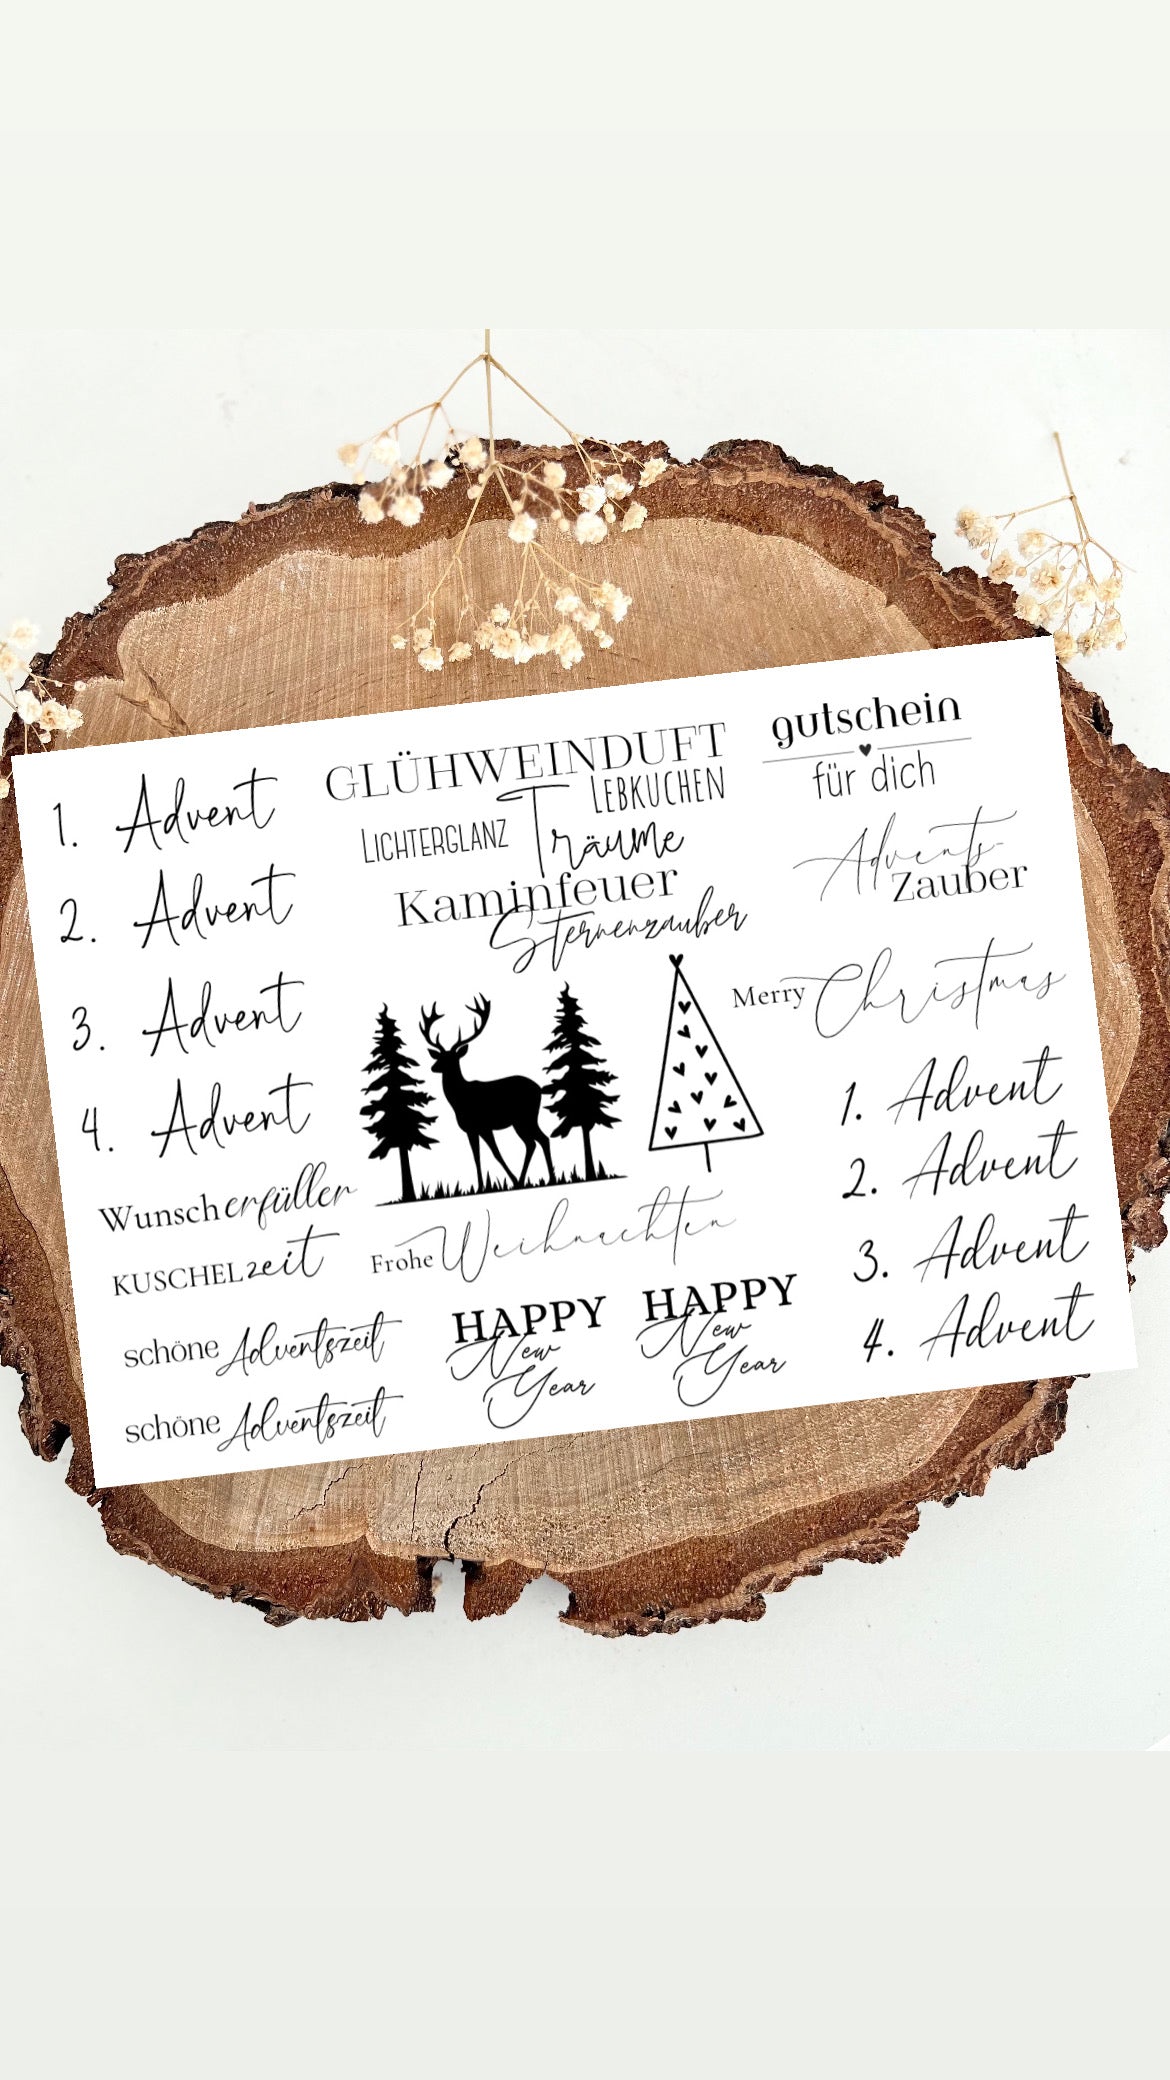 1. Advent
2. Advent
3. Advent
4. Advent
Wunscherfüller
KUSCHELzeit
schöne Adventszeit
schöne Adventszeit
GLÜHWEINDUFT
LEBKUCHEN
LICHTERGLANZ Träume
Kaminfeuer
Sternenzauber
Frohe Weihnachten
HAPPY
New
Year
HAPPY
New
Year
gutschein
für dich
Advents-
Zauber
Merry Christmas
1. Advent
2. Advent
3. Advent
4. Advent